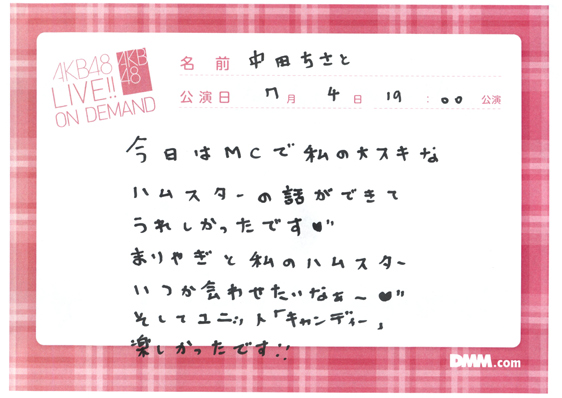 AKB48
LIVE!!
ON DEMAND
AKB
48
名前 中田ちさと
公演日 7月 4日 19:00 公演
今日はMCで私の大スキな
ハムスターの話ができて
うれしかったです♥
まりやぎと私のハムスター
いつか会わせたいなぁ〜♥
そしてユニット「キャンディー」
楽しかったです!!
DMM.com